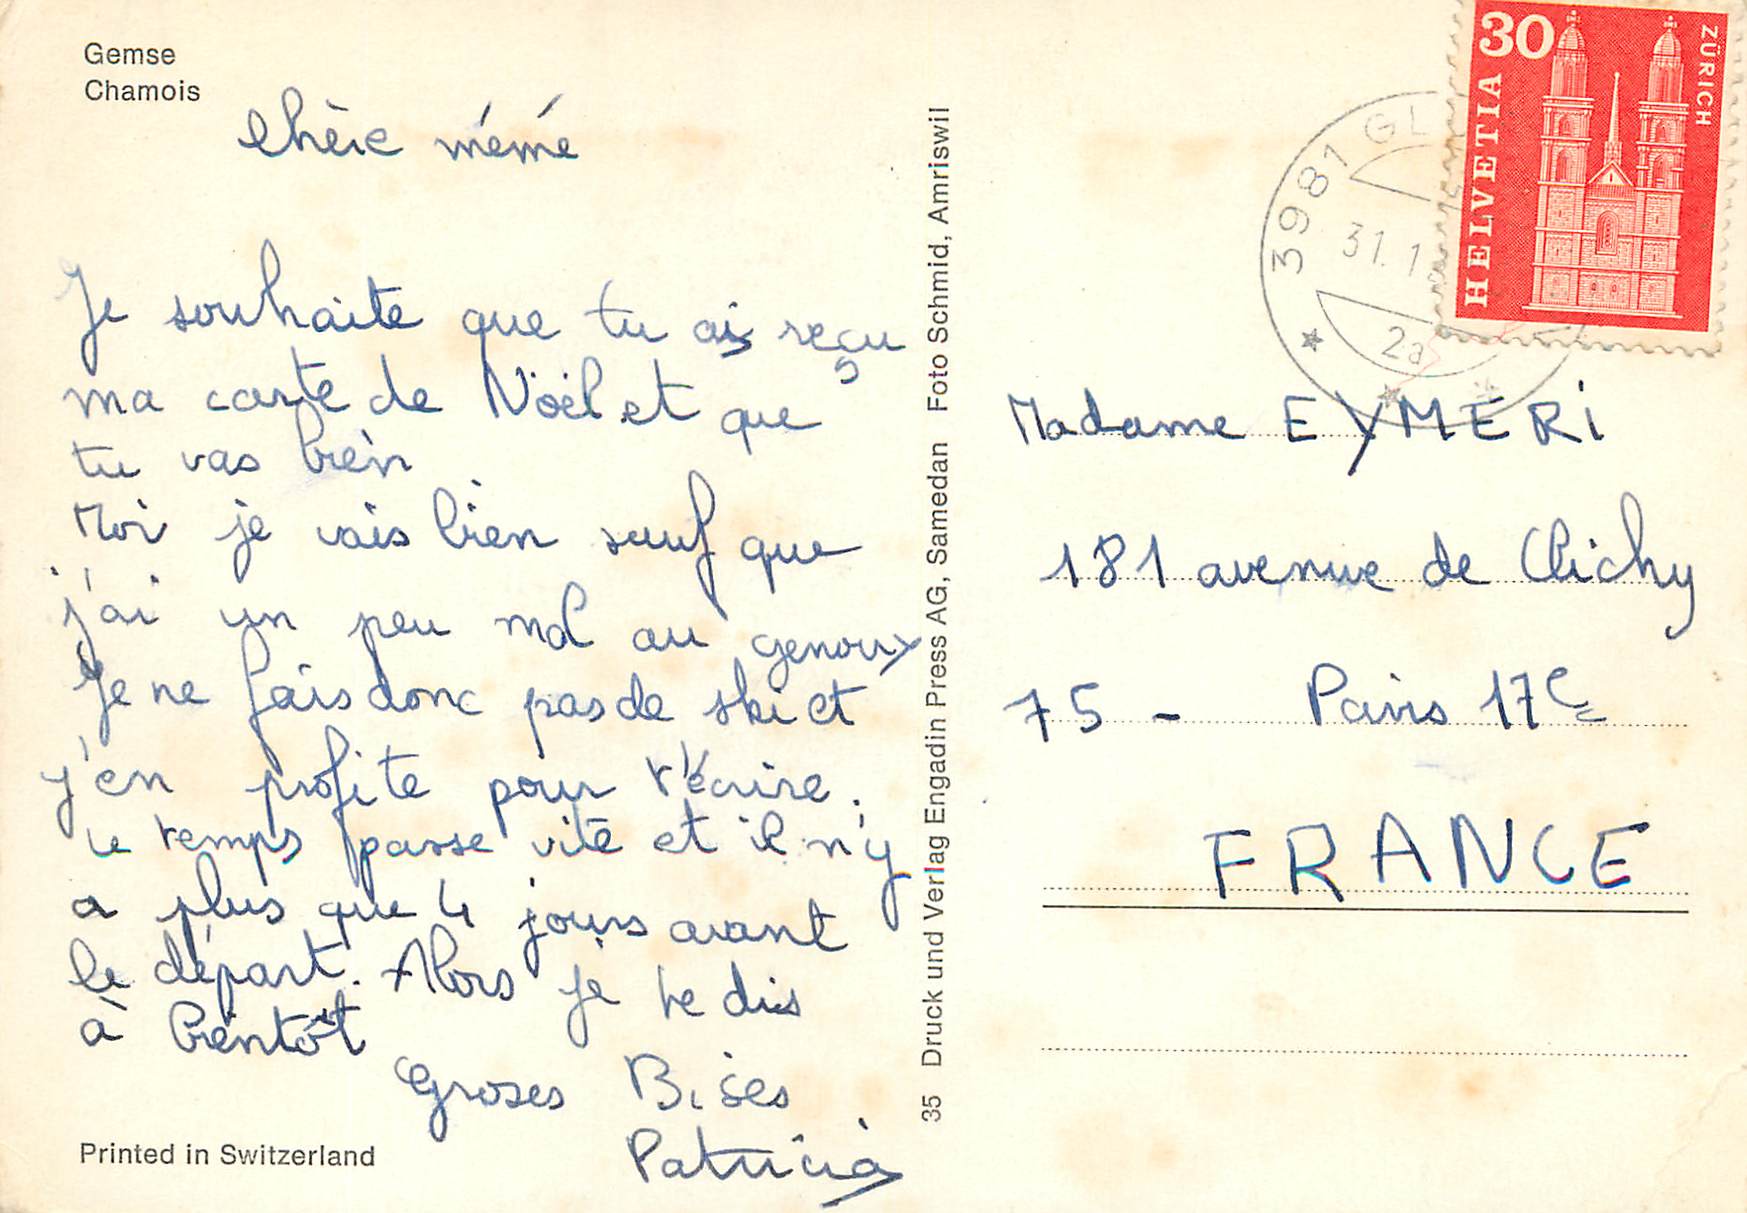 Gemse
Chamois
chère mémé
Je souhaite que tu ais reçu
ma carte de Nöel et que
tu vas bien
Moi je vais bien sauf que
j'ai un peu mal au genoux
Je ne fais donc pas de ski et
j'en profite pour t'écrire.
Le temps passe vite et il n'y
a plus que 4 jours avant
le départ. Alors je te dis
à bientôt
Groses Bises
Patricia
Printed in Switzerland
35 Druck und Verlag Engadin Press AG, Samedan Foto Schmid, Amriswil
30
HELVETIA
ZÜRICH
3981 GL
31.1
2a
Madame EYMERi
181 avenue de Clichy
75 - Paris 17e
FRANCE